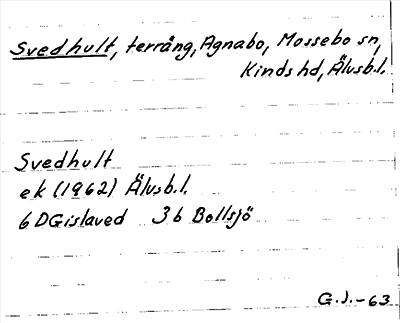 Svedhult, terräng, Agnabo, Mossebo sn,
Kinds hd, Älvsb.l.
Svedhult
ek (1962) Älvsb.l.
6D Gislaved 3b Bollsjö
G.J.-63